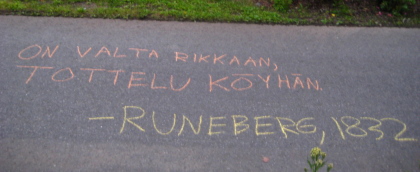 ON VALTA RIKKAAN,
TOTTELU KÖYHÄN.
-RUNEBERG, 1832